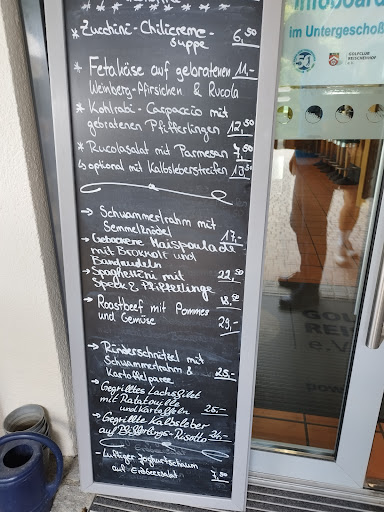 * Zucchini-Chilicreme-
suppe 6,50
* Fetakäse auf gebratenen 11,-
Weinberg-Pfirsichen & Rucola
* Kohlrabi-Carpaccio mit
gebratenen Pfifferlingen 12,50
* Rucolasalat mit Parmesan 7,50
↳ optional mit Kalbsleberstreifen 13,50
→ Schwammerlrahm mit
Semmelknödel 17,-
→ Gebackene Maispoularde
mit Brokkoli und
Bandnudeln 22,50
→ Spaghettini mit
Speck & Pfifferlinge 18,50
→ Roastbeef mit Pommes
und Gemüse 29,-
→ Rinderschnitzel mit
Schwammerlrahm &
Kartoffelpüree 25,-
→ Gegrilltes Lachsfilet
mit Ratatouille
und Kartoffeln 25,-
→ Gegrillte Kalbsleber
auf Pfifferlings-Risotto 24,-
- Luftiger Joghurtschaum
auf Erdbeersalat 7,50
Infoboard
im Untergeschoß
GOLFCLUB
REISCHENHOF
e.V.
GOL
REIS
e.V.